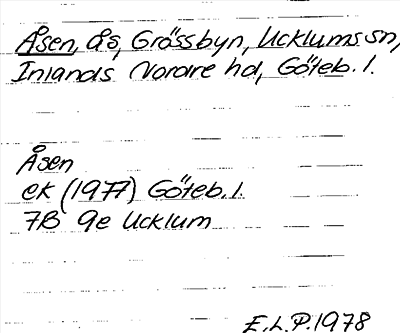 Åsen, ås, Grössbyn, Ucklums sn,
Inlands Nordre hd, Göteb. l.
Åsen
ek (1977) Göteb. l.
7B 9e Ucklum
E.L.P. 1978